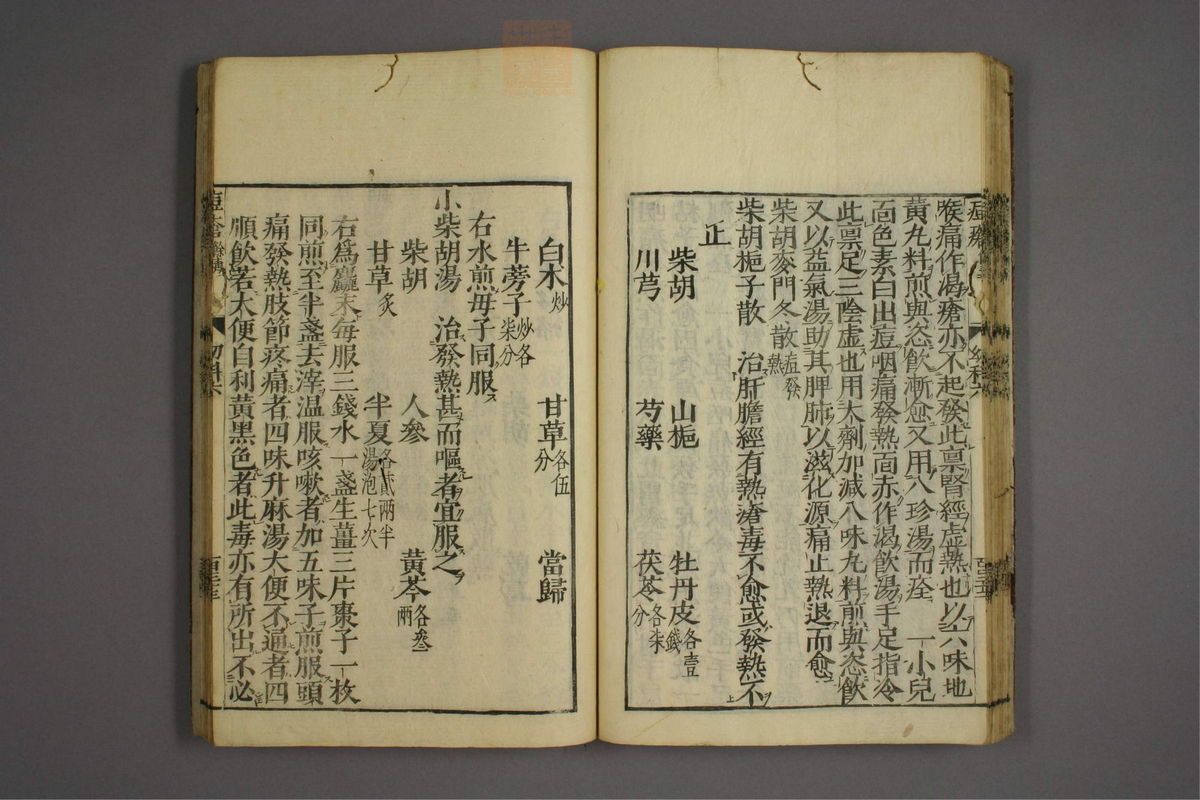 喉痛作渴瘡亦不起發此禀腎經虛熱也以六味地
黃丸料煎與恣飲漸愈又用八珍湯而痊　一小兒
靣色素白出痘咽痛發熱靣赤作渴飲湯手足指冷
此禀足三陰虛也用大劑加減八味丸料煎與恣飲
又以益氣湯助其脾肺以滋化源痛止熱退而愈
柴胡麥門冬散痘發熱
柴胡梔子散　治肝膽經有熱瘡毒不愈或發熱不
正
柴胡　山梔　牡丹皮各壹錢
川芎　芍藥　茯苓各柒分
白朮炒　甘草各伍分　當歸
牛蒡子炒各柒分
右水煎毋子同服
小柴胡湯　治發熱甚而嘔者宜服之
柴胡　人參　黃芩各叁兩
甘草炙　半夏各貳兩半湯泡七次
右爲麤末每服三錢水一盞生薑三片棗子一枚
同煎至半盞去滓温服咳嗽者加五味子煎服頭
痛發熱肢節疼痛者四味升麻湯大便不通者四
順飲若大便自利黃黑色者此毒亦有所出不必